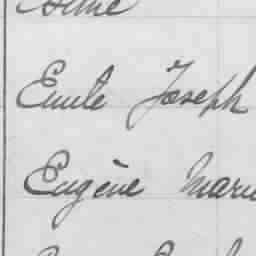 Emile Joseph
Eugène Marie